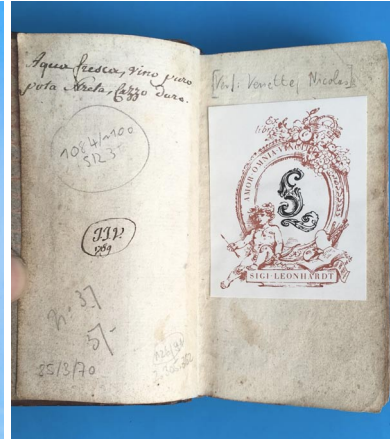 Aqua fresca, vino puro
pota streta, Cazzo duro.
1084/1100
S123
JJV.
769
n: 37
5/-
25/3/70
[Verf: Venette, Nicolas]
Ex
libris
AMOR·OMNIA·VINCIT
SL
SIGI·LEONHARDT